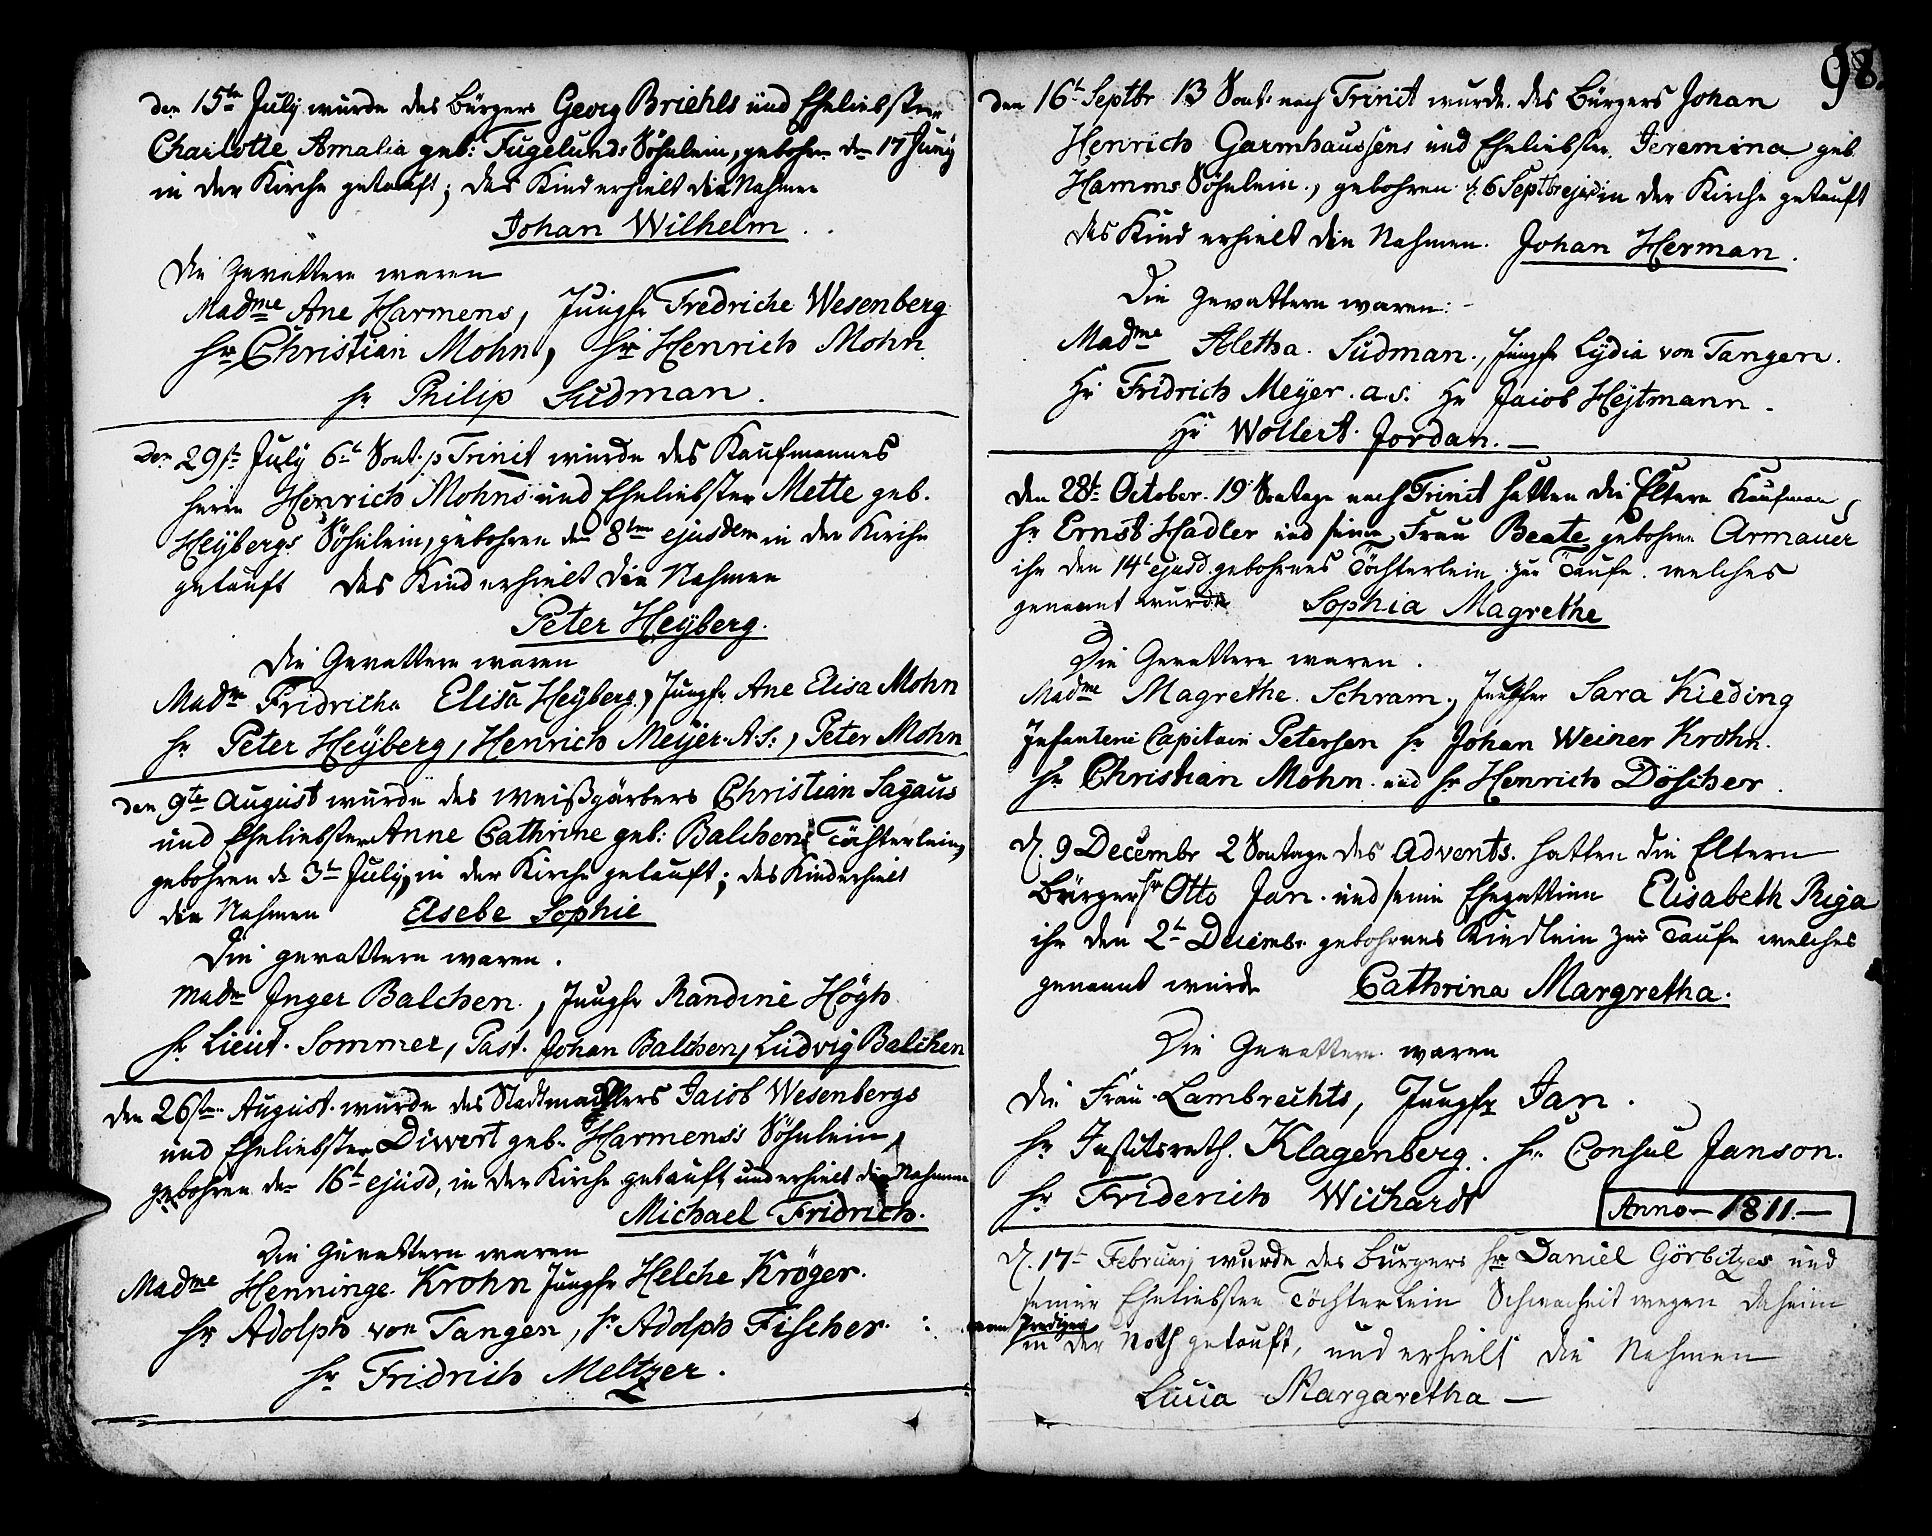 den 15te July wurde des Bürgers Georg Briehls und Eheliebsten
Charlotte Amalia geb: Fugelunds Söhnlein, gebohren den 17 Juny
in der Kirche getauft; das Kind erhielt die Nahmen
Johan Wilhelm
Die Gevattern waren
Madme Ane Harmens, Jungfr Fredriche Wesenberg
Hr Christian Mohn, Hr Henrich Mohn
Hr Philip Sudman.
Den 29st July 6t Sont. p Trinit wurde des Kaufmannes
Herrn Henrich Mohns und Eheliebsten Mette geb.
Heybergs Söhnlein, gebohren den 8ten ejusdem in der Kirche
getauft das Kind erhielt die Nahmen
Peter Heyberg.
Die Gevattern waren
Madm Fridricha Elisa Heyberg, Jungfr Ane Elisa Mohn
Hr Peter Heyberg, Henrich Meyer A.S:, Peter Mohn
den 9te August wurde des Weißgärbers Christian Sagaus
und Eheliebsten Anne Cathrine geb: Balchens Töchterlein,
gebohren d 3t July, in der Kirche getauft; das Kind erhielt
die Nahmen Elsebe Sophie
Die gevattern waren.
Madm Inger Balchen, Jungfr Randine Högh
Hr Lieut. Sommer, Past. Johan Balchen, Ludvig Balchen
den 26sten August wurde des Stadtmäcklers Jacob Wesenbergs
und Eheliebsten Diwert geb. Harmens's Söhnlein,
gebohren den 16t ejusd, in der Kirche getauft, und erhielt die Nahmen
Michael Fridrich.
Die Gevattern waren
Madme Henninge Krohn Jungfr Helche Kröger.
Hr Adolph von Tangen, Hr Adolph Fischer.
Hr Fridrich Meltzer.
98.
den 16t Septbr 13 Sont: nach Trinit wurde des Bürgers Johan
Henrich Garmhaussens und Eheliebsten Jeremina geb
Hamms Söhnlein, gebohren d. 6 Septbr ejusd: in der Kirche getauft
das Kind erhielt die Nahmen. Johan Herman.
Die Gevattern waren:
Madme Aletha Sudman, Jungfr Lydia von Tangen.
Hr Fridrich Meyer a.s. Hr Jacob Heytmann.
Hr Wollert Jordan.
Den 28t October. 19 Sontage nach Trinit hatten die Eltern Kaufman
Hr Ernst Hadler und seine Frau Beate gebohren Armauer
ihr den 14t ejusd gebohrnes Töchterlein zur Taufe welches
genannt wurde Sophia Magrethe
Die Gevattern waren.
Madme Magrethe Schram, Jungfer Sara Kieding
Infanterie Capitain Petersen Hr Johan Weiner Krohn.
Hr Christian Mohn und Hr Henrich Döscher.
D. 9 Decembr 2 Sontage des Advents hatten die Eltern
Bürger Hr Otto Jan und seine Ehegattinn Elisabeth Riga
ihr den 2t Decembr gebohrnes Kindlein zur Taufe welches
genannt wurde Cathrina Margretha.
Die Gevattern waren
Die Frau Lambrechts, Jungfr Jan.
Hr Justitsrath Klagenberg. Hr Consul Janson.
Hr Friderich Wichardt
Anno 1811.
D. 17t Februarj wurde des Bürgers Hr Daniel Görbitzes und
seiner Eheliebsten Töchterlein Schwacheit wegen daheim
vom Prediger
in der Noth getauft, und erhielt die Nahmen
Lucia Margaretha